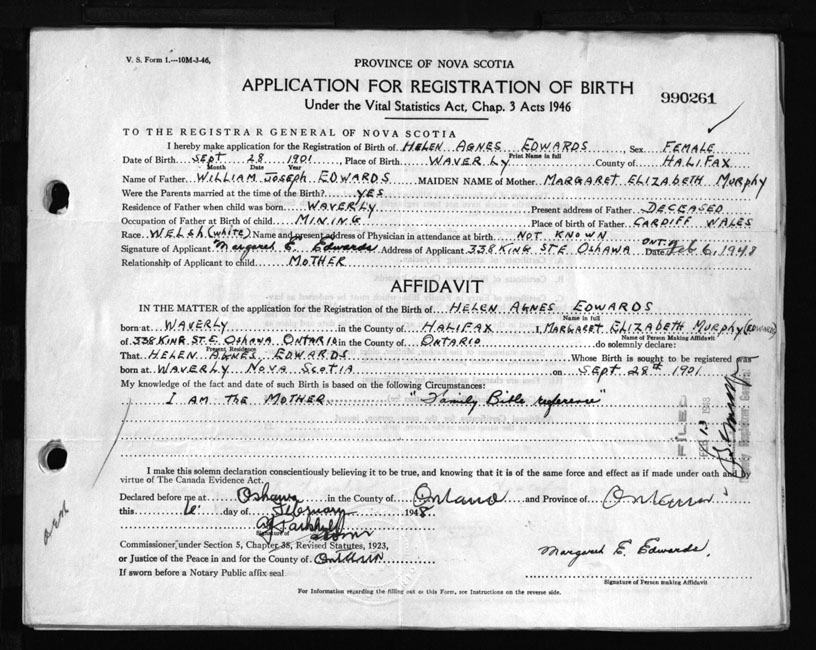 V. S. Form 1.—10M-3-46,
PROVINCE OF NOVA SCOTIA
APPLICATION FOR REGISTRATION OF BIRTH
Under the Vital Statistics Act, Chap. 3 Acts 1946
990261
TO THE REGISTRAR GENERAL OF NOVA SCOTIA
I hereby make application for the Registration of Birth of HELEN AGNES EDWARDS, Sex FEMALE
Print Name in full
Date of Birth SEPT 28 1901, Place of Birth WAVERLY County of HALIFAX
Month Date Year
Name of Father WILLIAM JOSEPH EDWARDS MAIDEN NAME of Mother MARGARET ELIZABETH MURPHY
Were the Parents married at the time of the Birth? YES
Residence of Father when child was born WAVERLY Present address of Father DECEASED
Occupation of Father at Birth of child MINING Place of birth of Father CARDIFF WALES
Race WELSH (WHITE) Name and present address of Physician in attendance at birth NOT KNOWN
Signature of Applicant Margaret E. Edwards Address of Applicant 338 KING ST E OSHAWA ONT. Date Feb 6, 1948
Relationship of Applicant to child MOTHER
AFFIDAVIT
IN THE MATTER of the application for the Registration of the Birth of HELEN AGNES EDWARDS
Name in full
born at WAVERLY in the County of HALIFAX I, MARGARET ELIZABETH MURPHY (EDWARDS)
Name of Person Making Affidavit
of 338 KING ST. E OSHAWA ONTARIO in the County of ONTARIO do solemnly declare:
Present Residence
That HELEN AGNES EDWARDS Whose Birth is sought to be registered was
born at WAVERLY NOVA SCOTIA on SEPT 28th 1901
My knowledge of the fact and date of such Birth is based on the following Circumstances:
I AM THE MOTHER "Family Bible reference"
FILED
I make this solemn declaration conscientiously believing it to be true, and knowing that it is of the same force and effect as if made under oath and by
virtue of The Canada Evidence Act.
Declared before me at Oshawa in the County of Ontario and Province of Ontario
this 6 day of February 1948
Signature of
Commissioner, under Section 5, Chapter 38, Revised Statutes, 1923,
or Justice of the Peace in and for the County of Ontario
If sworn before a Notary Public affix seal
Margaret E. Edwards.
Signature of Person making Affidavit
For Information regarding the filling out of this Form, see Instructions on the reverse side.